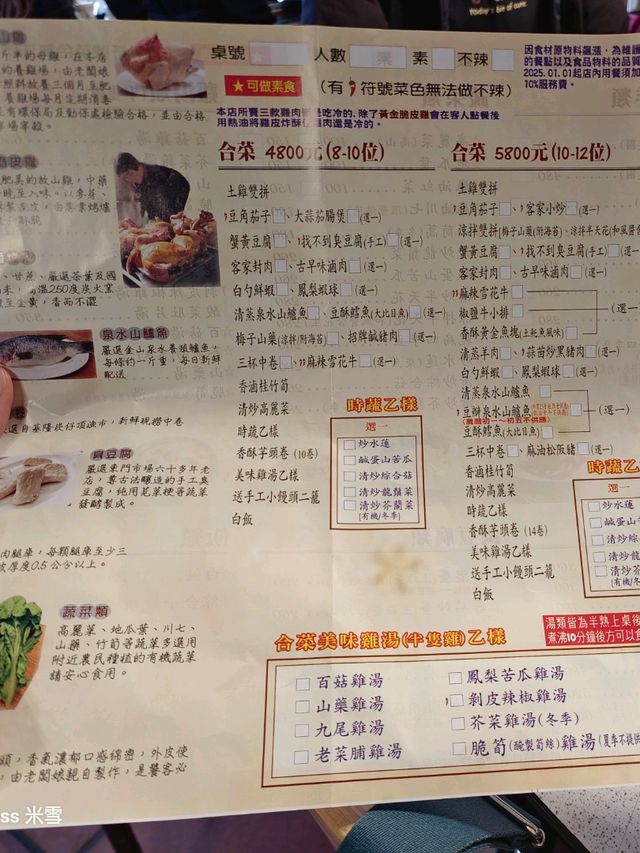 桌號 人數 素 素 不辣
★可做素食 (有 符號菜色無法做不辣)
因食材原物料飆漲，為維護
的餐點以及食品物料的品質
2025.01.01起店內用餐須加
10%服務費。
本店所賣三款雞肉 是吃冷的，除了黃金脆皮雞會在客人點餐後
用熱油將雞皮炸酥 肉還是冷的。
合菜 4800元(8-10位)
土雞雙拼
豆角茄子、大蒜茄腸煲(選一)
蟹黃豆腐、找不到臭豆腐(手工)(選一)
客家封肉、古早味滷肉(選一)
白灼鮮蝦、鳳梨蝦球(選一)
清蒸泉水山鱸魚、豆酥鱈魚(大比目魚)(選一)
梅子山藥(涼拌/附海苔)、招牌鹹豬肉(選一)
三杯中卷、麻辣雪花牛(選一)
香滷桂竹筍
清炒高麗菜
時蔬乙樣
香酥芋頭卷(10卷)
美味雞湯乙樣
送手工小饅頭二籠
白飯
時蔬乙樣
選一
炒水蓮
鹹蛋山苦瓜
清炒綜合菇
清炒龍鬚菜
清炒芥蘭菜
[有機/冬季]
合菜 5800元(10-12位)
土雞雙拼
豆角茄子、客家小炒(選一)
涼拌雙拼(梅子山藥(附海苔)、涼拌牛天花(和風醬
蟹黃豆腐、找不到臭豆腐(手工)(選一)
客家封肉、古早味滷肉(選一)
麻辣雪花牛
椒鹽牛小排
香酥黃金魚塊(土魠魚風味)
(選一)
清蒸羊肉、蒜苗炒黑豬肉(選一)
白灼鮮蝦、鳳梨蝦球(選一)
清蒸泉水山鱸魚
豆瓣泉水山鱸魚
(農曆初一～初五不供應)
豆酥鱈魚(大比目魚)
(選一)
三杯中卷、麻油松阪豬(選一)
香滷桂竹筍
清炒高麗菜
時蔬乙樣
香酥芋頭卷(14卷)
美味雞湯乙樣
送手工小饅頭二籠
白飯
時蔬乙
選一
炒水蓮
鹹蛋山
清炒綜
清炒龍
清炒芥
[有機/
湯類皆為半熟上桌後
煮沸10分鐘後方可以食
合菜美味雞湯(半隻雞)乙樣
百菇雞湯
山藥雞湯
九尾雞湯
老菜脯雞湯
鳳梨苦瓜雞湯
剝皮辣椒雞湯
芥菜雞湯(冬季)
脆筍(醃製筍絲)雞湯(夏季不提供
泉水山鱸魚
嚴選金山泉水養殖鱸魚，
每條約一斤重，每日新鮮
配送
選自基隆崁仔頂漁市，新鮮現撈中卷
臭豆腐
嚴選東門市場六十多年老
店，尊古法釀造的手工臭
豆腐，純用莧菜梗等蔬菜
發酵製成。
肉腿庫，每顆腿庫至少三
厚度0.5公分以上。
蔬菜類
高麗菜、地瓜葉、川七、
山藥、竹筍等蔬菜多選用
附近農民種植的有機蔬菜
請安心食用。
頭，香氣濃郁口感綿密，外皮使
，由老闆娘親自製作，是饕客必
ss 米雪